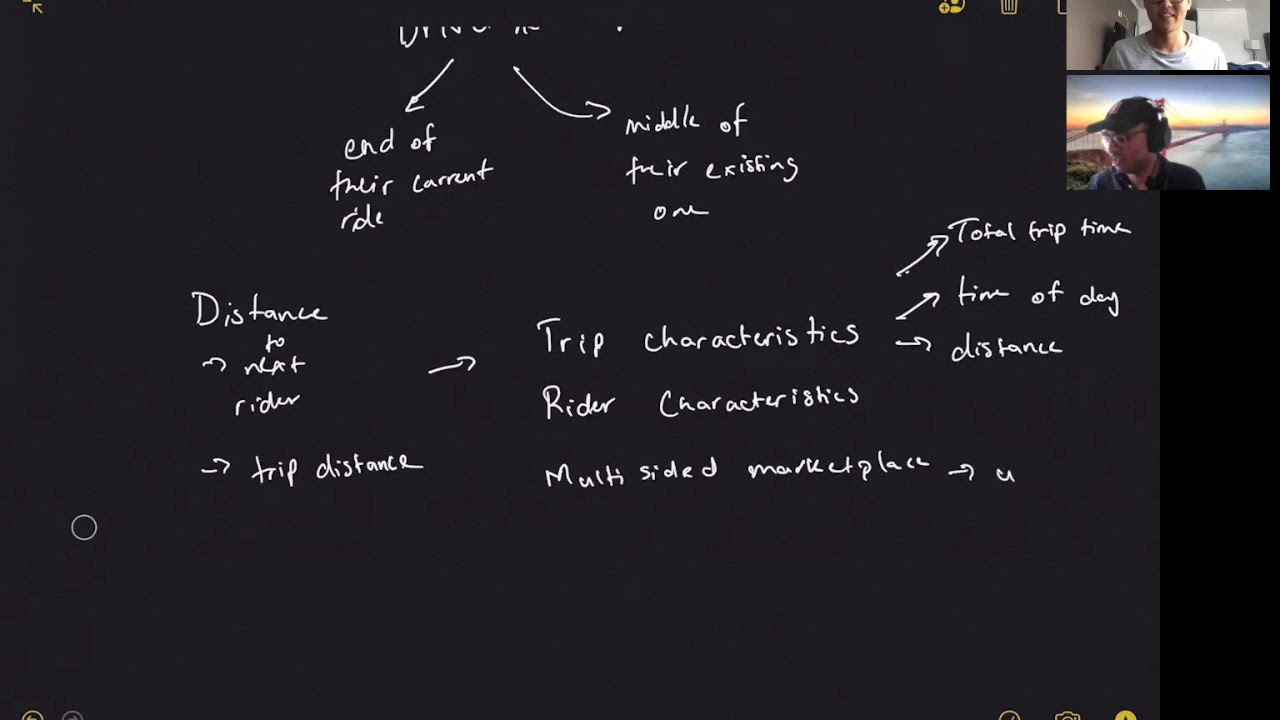 end of
their current
ride
middle of
their existing
one
Distance
to
→ next
rider
→ trip distance
→
Trip characteristics
Rider Characteristics
Multi sided marketplace → u
Total trip time
time of day
→ distance